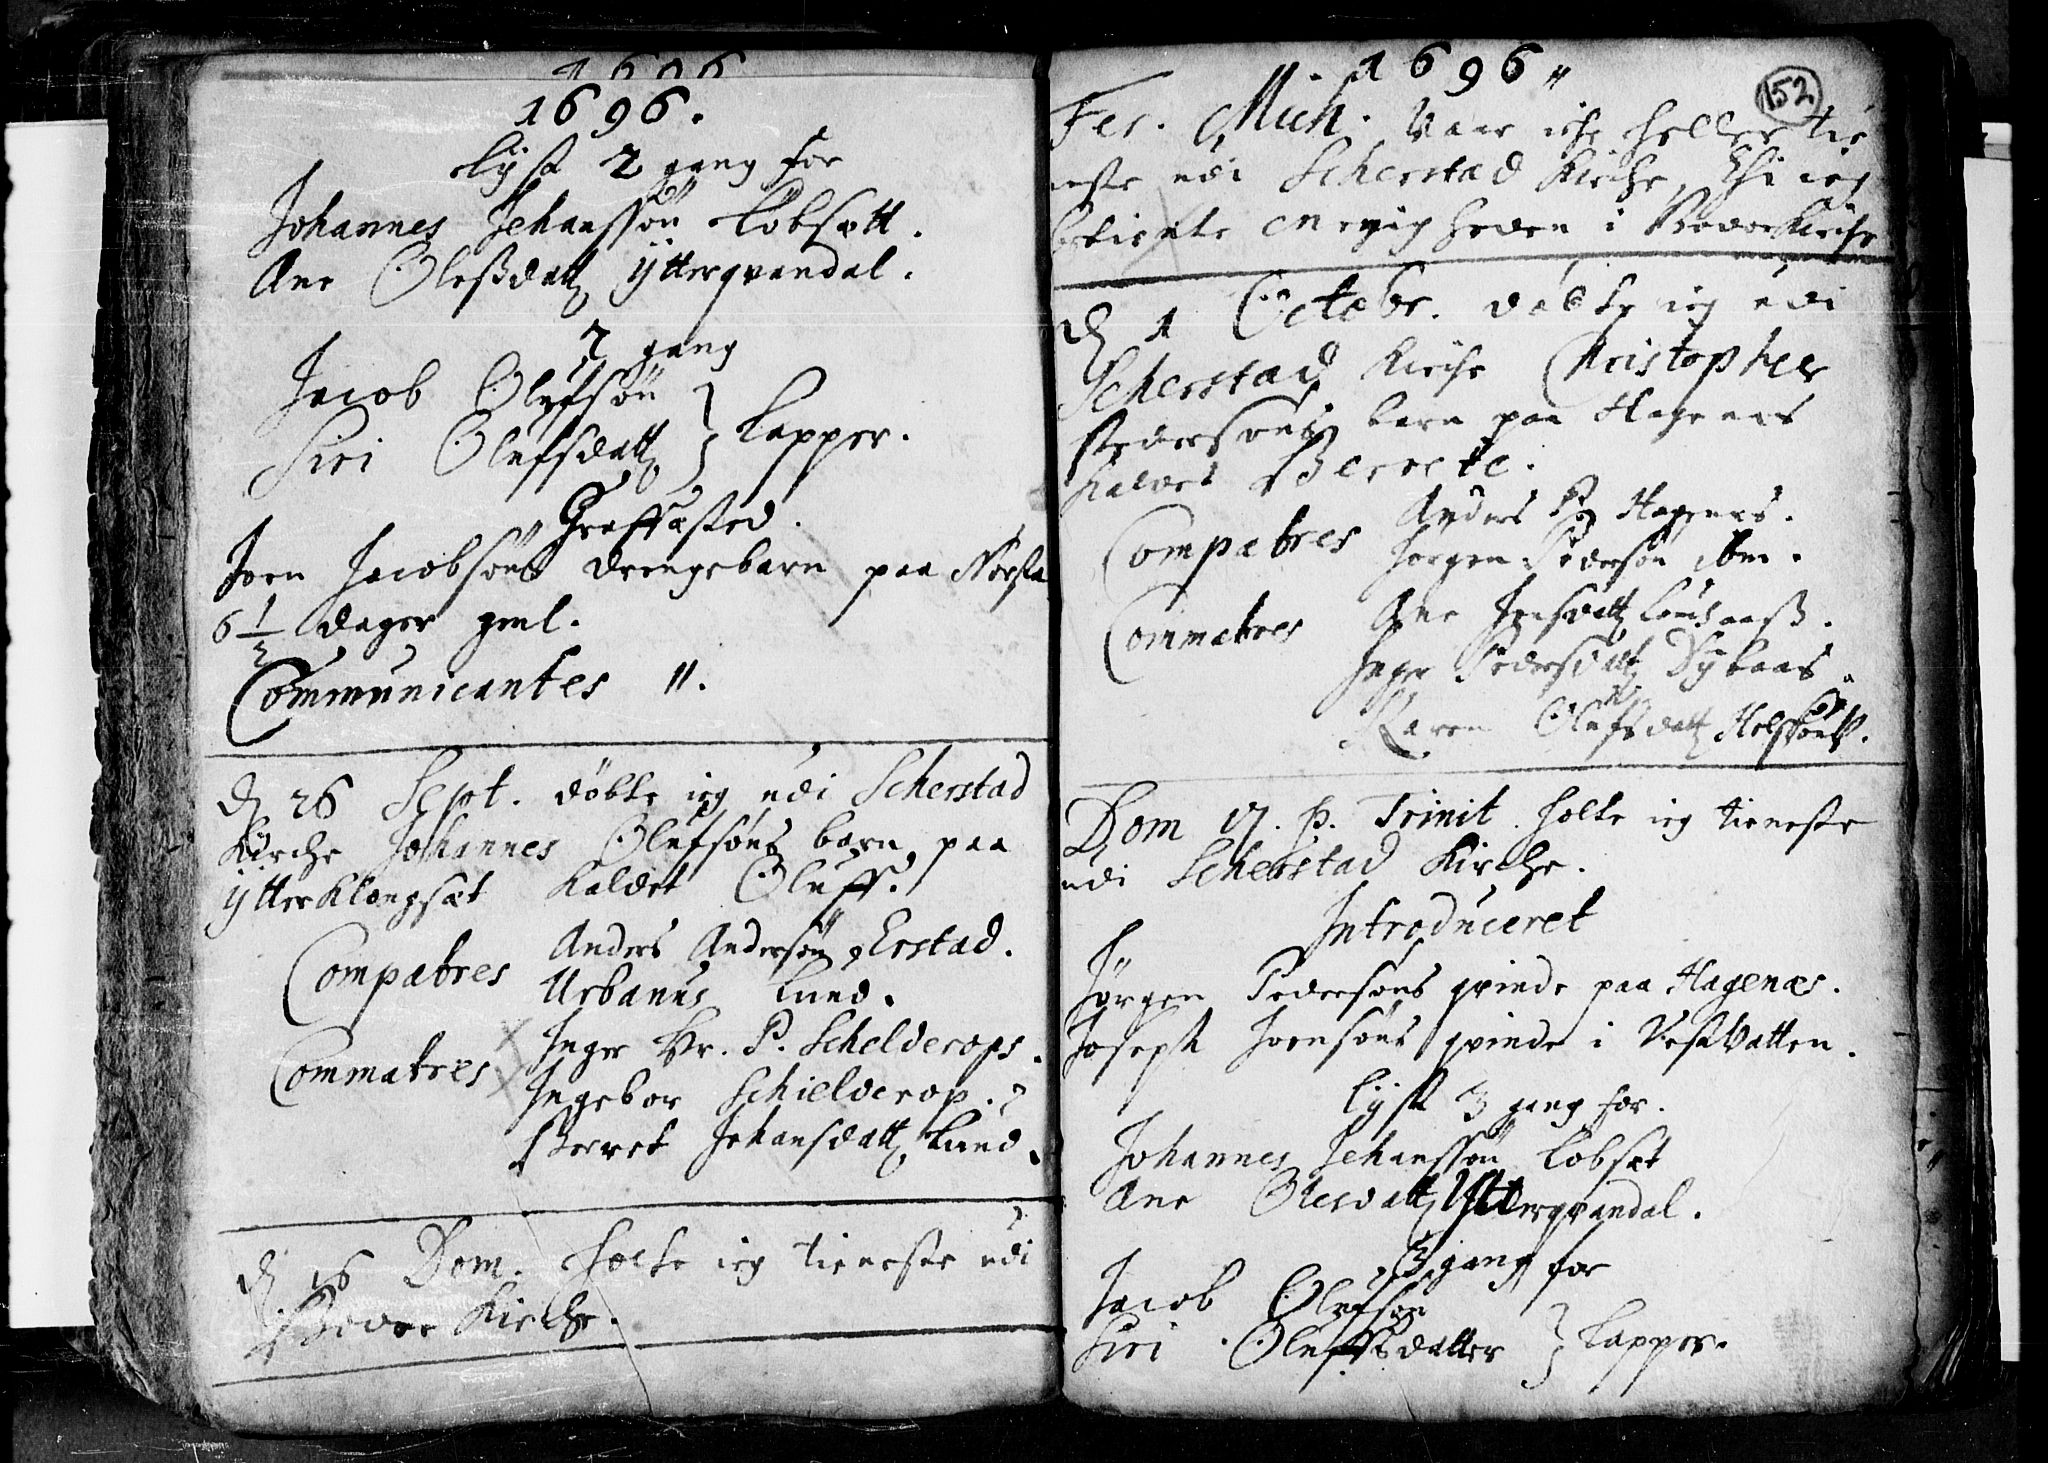 1696
1696.
lyst 2 gang for
Johannes Jehanssøn Løbsætt.
Ane Oleßdatt Yttergrandal.
2 gang
Jacob Olufsøn
Siri Olufsdatt } Lapper.
Graffæsted.
Joen Jacobsøns drengebarn paa Norsta
6 1/2 dager gml.
Communicantes 11.
D 26 Sept. døbte ieg udi Scherstad
Kirche Johannes Olufsøns barn paa
YtterKlongsæt kaldet Oluff.
Compatres Anders Andersøn Erstad.
Urbanus Lund.
Commatres Inger Hr. P. Schelderops.
Ingebor Schielderop.
Berret Jehansdatt Lund.
D 16 Dom. holte ieg tieneste udi
Bodøe Kirche.
1696
152
Fer. Mich. Vaar iche heller tie
neste udi Scherstad Kirche, Thi ieg
betiente menigheden i Bodøe Kirche
D 1 Octobr. døbte ieg udi
Scherstad Kirche Christopher
Pedersøns barn paa Hagenæs
kaldet Berrete.
Compatres Anders P. Hagenæs.
Jørgen Pedersøn ibm.
Commatres Ane Jensdatt
Inger Pedersdatt
Karen Olufsdatt
Dom 17. p. Trinit. holte ieg tieneste
udi Scherstad Kirche.
Introduceret
Jørgen Pedersøns qvinde paa Hagenæs.
Joseph Joensøns qvinde i VestVatten.
lyst 3 gang for.
Johannes Jehanssøn Løbsæt
Ane Olesdatt Yttergrandal.
3 gang for
Jacob Olufsøn
Siri Oluffsdatter } Lapper.